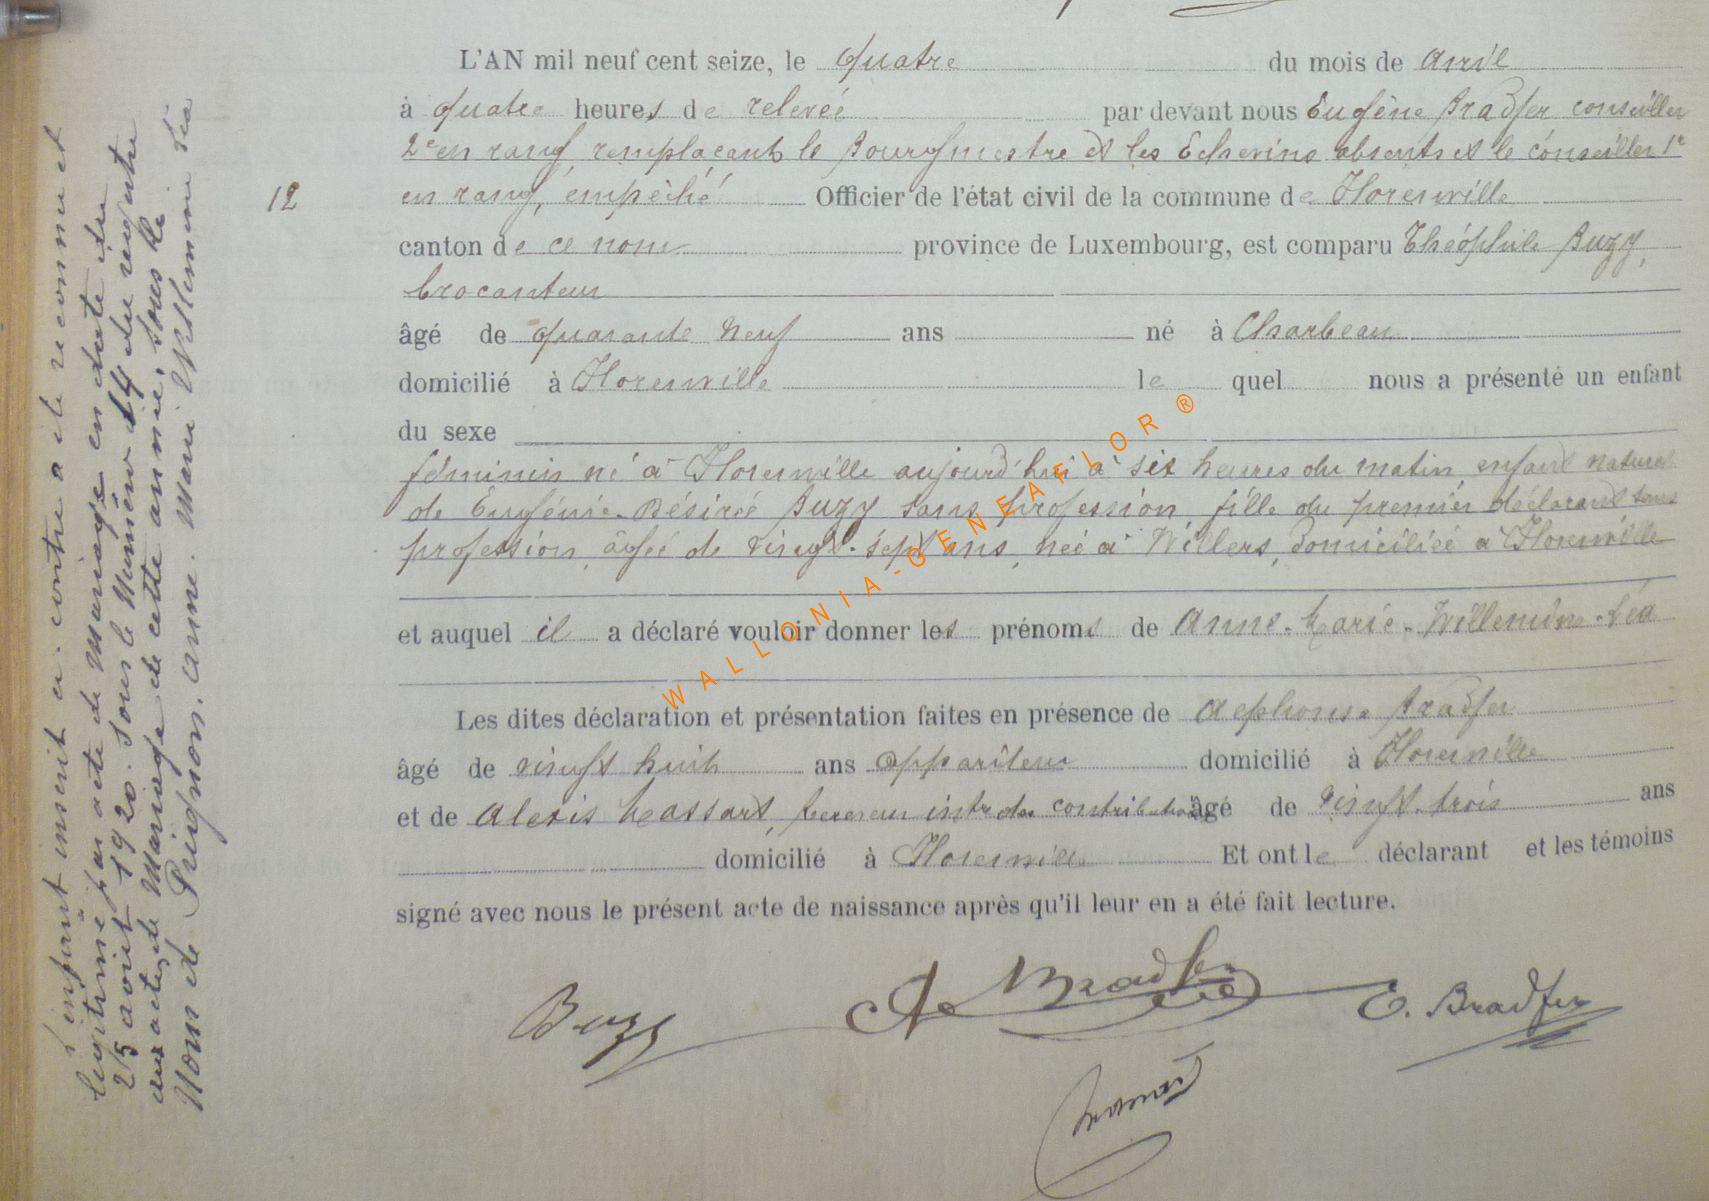 L'AN mil neuf cent seize, le quatre du mois de avril
à quatre heures de relevée par devant nous Eugène Bradfer conseiller
2e en rang remplaçant le Bourgmestre et les Echevins absents et le conseiller 1er
12
en rang, empêché Officier de l'état civil de la commune de Florenville
canton de ce nom province de Luxembourg, est comparu Théophile Buzy,
brocanteur
âgé de quarante neuf ans né à Charbeau
domicilié à Florenville le quel nous a présenté un enfant
du sexe
féminin né à Florenville aujourd'hui à six heures du matin, enfant naturel
de Eugénie-Désirée Buzy sans profession, fille du premier déclarant sans
profession, âgée de vingt-sept ans, née à Villers, domiciliée à Florenville
et auquel il a déclaré vouloir donner les prénoms de Anne-Marie-Willemine-Léa
Les dites déclaration et présentation faites en présence de Alphonse Bradfer
âgé de vingt huit ans appariteur domicilié à Florenville
et de Alexis Massart, receveur int. des contributions âgé de vingt-trois ans
domicilié à Florenville Et ont le déclarant et les témoins
signé avec nous le présent acte de naissance après qu'il leur en a été fait lecture.
Buzy A Bradfer E. Bradfer
L'enfant inscrit ci-contre a été reconnu et
légitimé par acte de Mariage en date du
25 août 1920. sous le Numéro 14 du registre
aux actes de Mariage de cette année, sous le
Nom de Puignon. Anne. Marie Willemine Léa
WALLONIA-GENEAFLOR ®